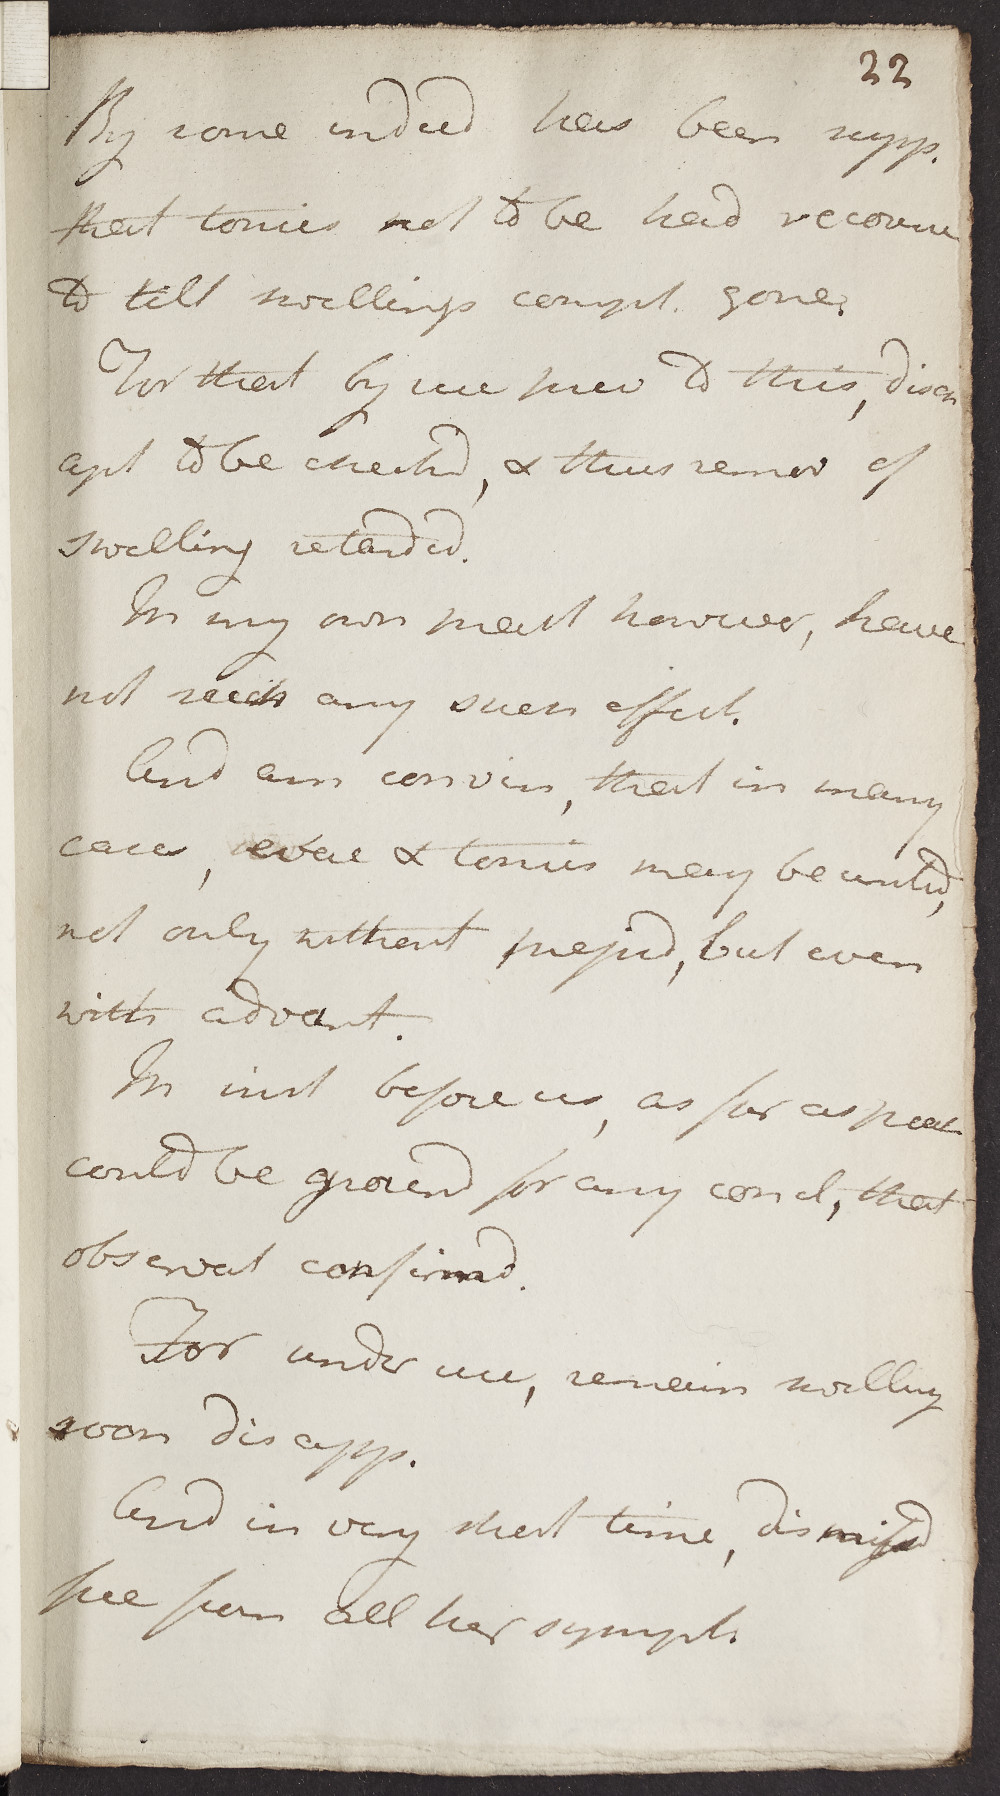 22
By some indeed has been supp.
that tonics not to be had recourse
to till swellings compt. gone.
For that by use prev to this, disch
apt to be checkd, & thus remov of
swelling retarded.
In my own pract however, have
not seen any such effect.
And am convin, that in many
case, evac & tonics may be unitd,
not only without prejud, but even
with advant.
In inst before us, as far as prac
could be ground for any concl, that
observat confirmd.
For under use, remain swelling
soon disapp.
And in very short time, dismissd
free from all her sympt.